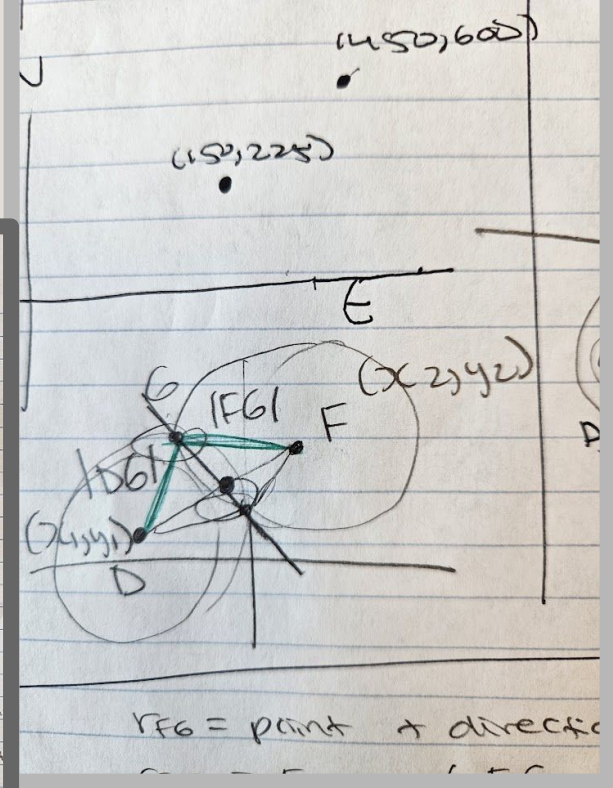 (450,600)
(150,225)
E
(x2,y2)
G
|FG|
F
|DG|
(x1,y1)
D
D
rFG = point + directio